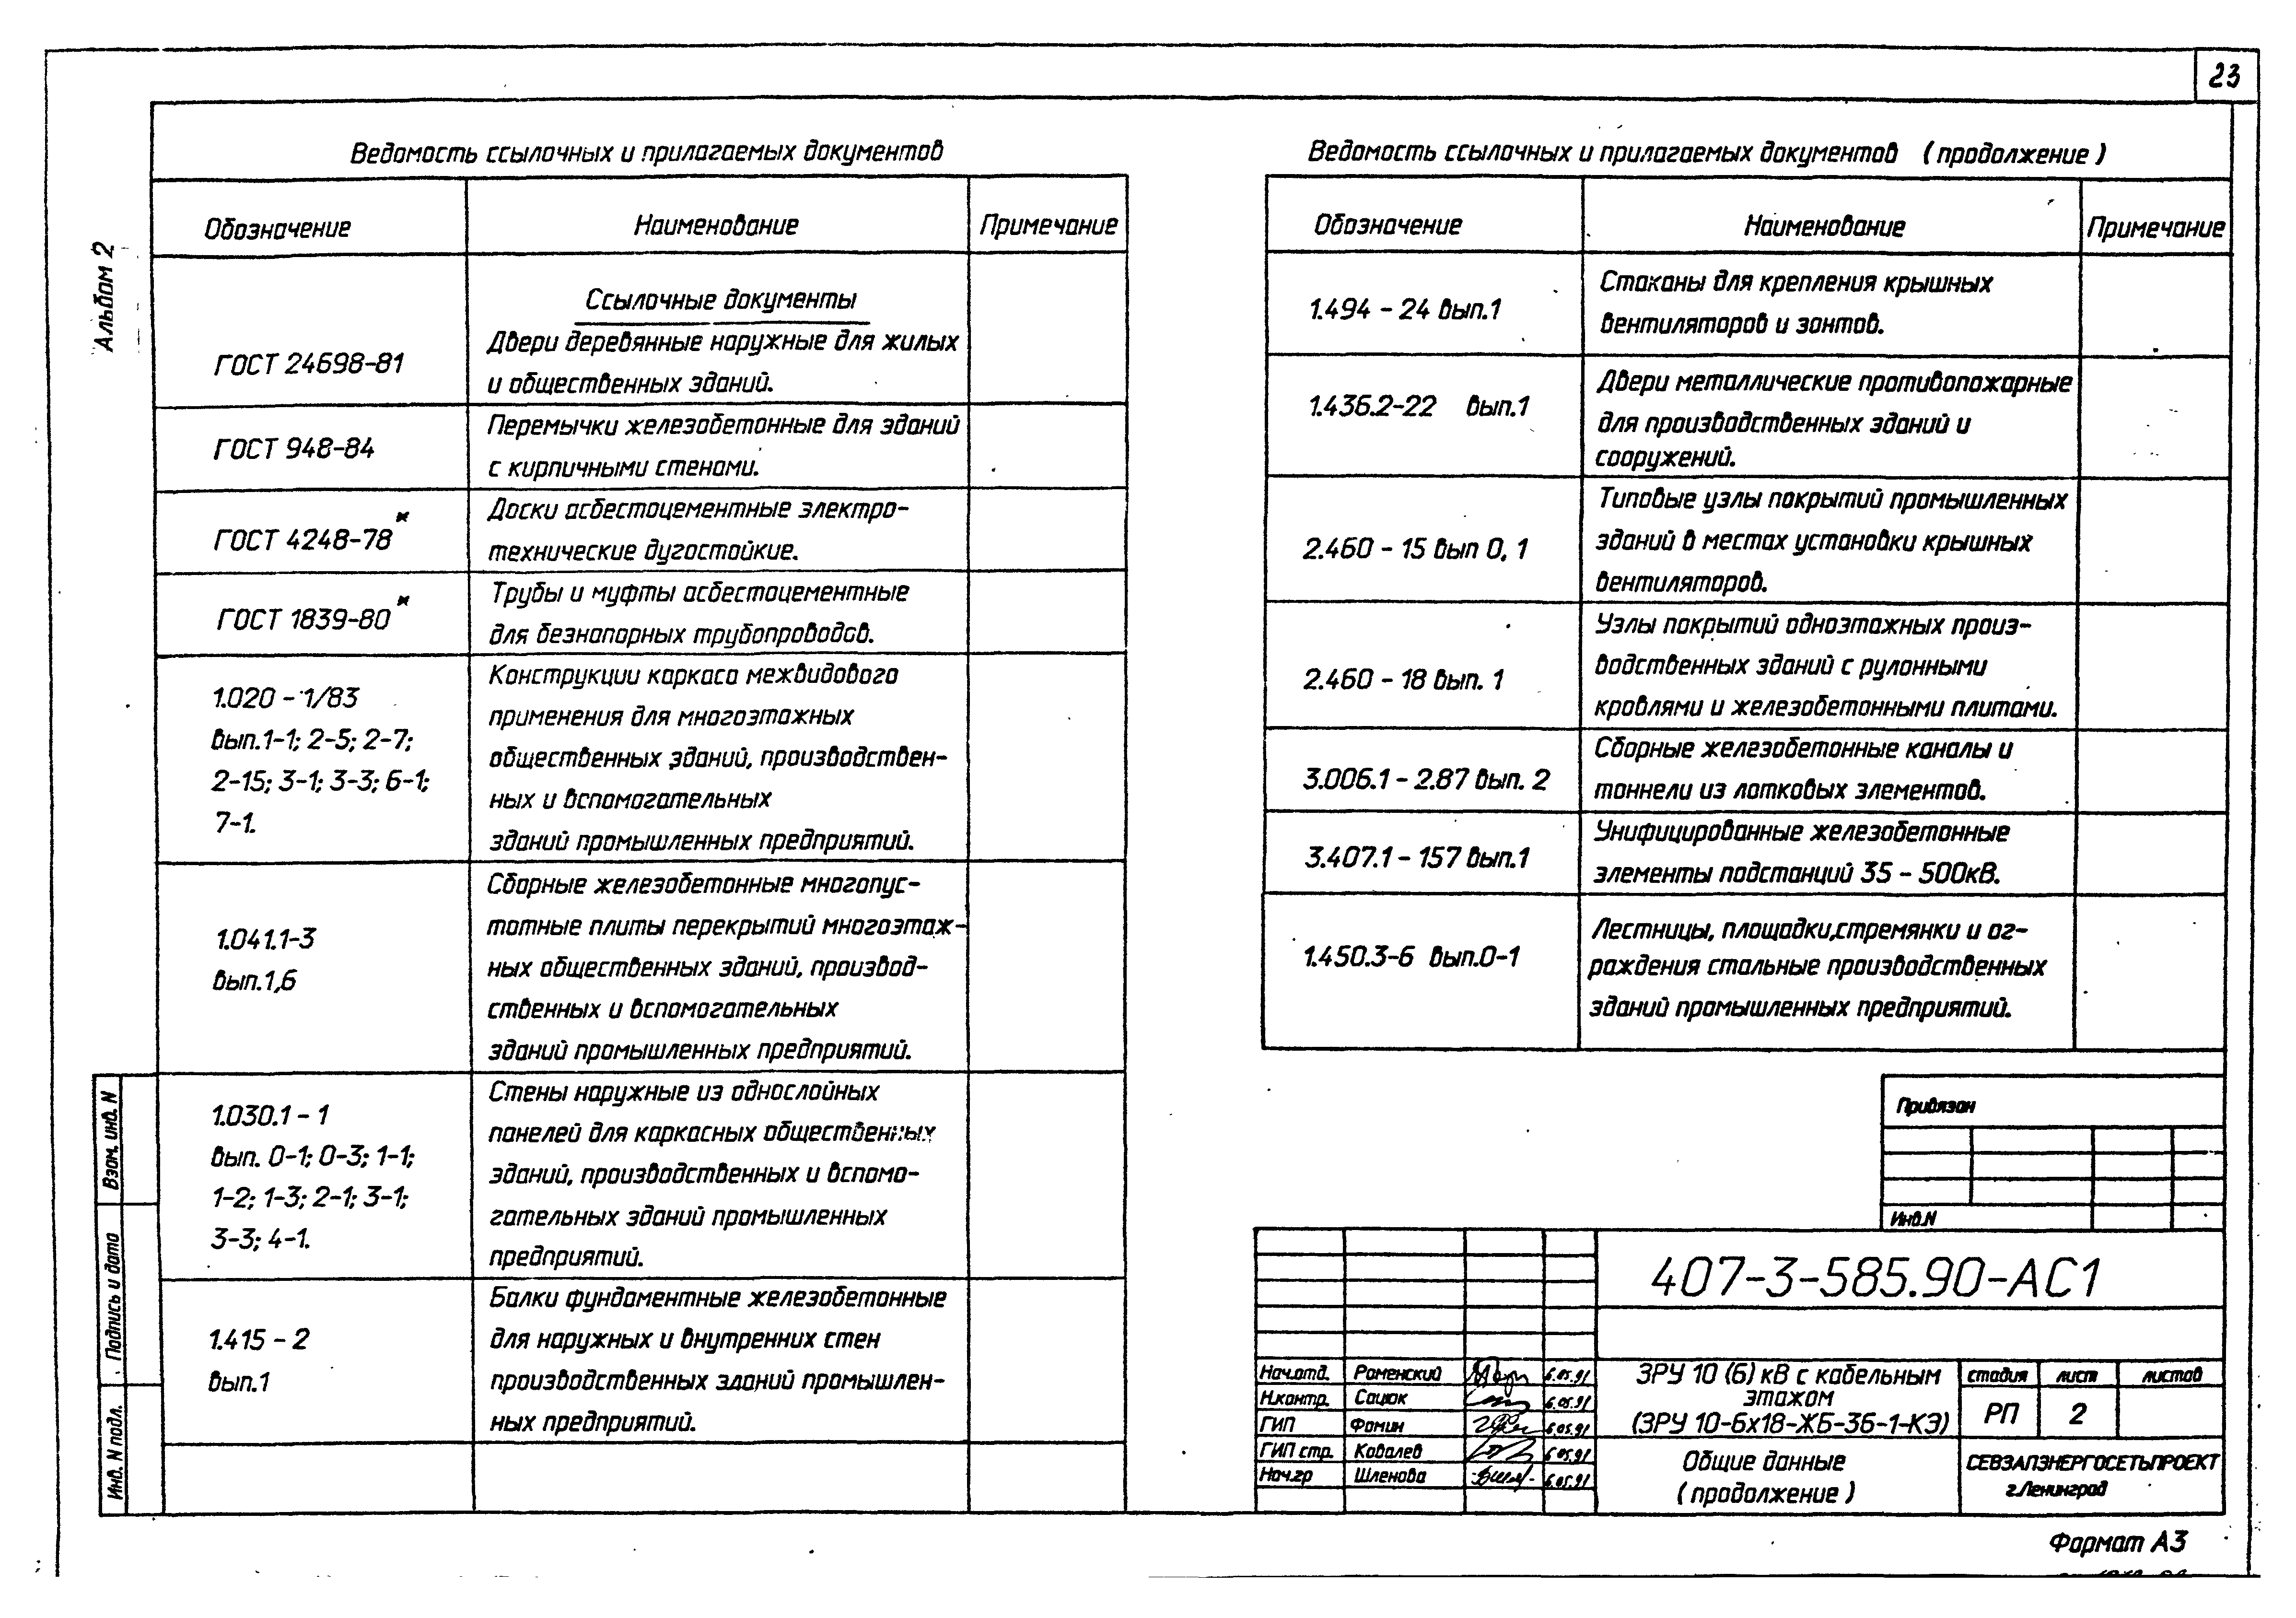 23
Альбом 2
Ведомость ссылочных и прилагаемых документов
Обозначение
Наименование
Примечание
Ссылочные документы
ГОСТ 24698-81
Двери деревянные наружные для жилых
и общественных зданий.
ГОСТ 948-84
Перемычки железобетонные для зданий
с кирпичными стенами.
ГОСТ 4248-78*
Доски асбестоцементные электро-
технические дугостойкие.
ГОСТ 1839-80*
Трубы и муфты асбестоцементные
для безнапорных трубопроводов.
1.020 - 1/83
вып.1-1; 2-5; 2-7;
2-15; 3-1; 3-3; 6-1;
7-1.
Конструкции каркаса межвидового
применения для многоэтажных
общественных зданий, производствен-
ных и вспомогательных
зданий промышленных предприятий.
1.041.1-3
вып.1,6
Сборные железобетонные многопус-
тотные плиты перекрытий многоэтаж-
ных общественных зданий, производ-
ственных и вспомогательных
зданий промышленных предприятий.
1.030.1 - 1
вып. 0-1; 0-3; 1-1;
1-2; 1-3; 2-1; 3-1;
3-3; 4-1.
Стены наружные из однослойных
панелей для каркасных общественных
зданий, производственных и вспомо-
гательных зданий промышленных
предприятий.
1.415 - 2
вып.1
Балки фундаментные железобетонные
для наружных и внутренних стен
производственных зданий промышлен-
ных предприятий.
Ведомость ссылочных и прилагаемых документов (продолжение)
Обозначение
Наименование
Примечание
1.494 - 24 вып.1
Стаканы для крепления крышных
вентиляторов и зонтов.
1.436.2-22 вып.1
Двери металлические противопожарные
для производственных зданий и
сооружений.
2.460 - 15 вып 0, 1
Типовые узлы покрытий промышленных
зданий в местах установки крышных
вентиляторов.
2.460 - 18 вып. 1
Узлы покрытий одноэтажных произ-
водственных зданий с рулонными
кровлями и железобетонными плитами.
3.006.1 - 2.87 вып. 2
Сборные железобетонные каналы и
тоннели из лотковых элементов.
3.407.1 - 157 вып.1
Унифицированные железобетонные
элементы подстанций 35 - 500кВ.
1.450.3-6 вып.0-1
Лестницы, площадки,стремянки и ог-
раждения стальные производственных
зданий промышленных предприятий.
Взам. инв. N
Подпись и дата
Инв. N подл.
Привязан
Инв.N
407-3-585.90-АС1
Нач.отд. Роменский 6.05.91
Н.контр. Сацюк 6.05.91
ГИП Фомин 6.05.91
ГИП стр. Ковалев 6.05.91
Нач.гр Шленова 6.05.91
ЗРУ 10 (6) кВ с кабельным
этажом
(ЗРУ 10-6х18-ЖБ-36-1-КЭ)
стадия лист листов
РП 2
Общие данные
(продолжение)
СЕВЗАПЭНЕРГОСЕТЬПРОЕКТ
г.Ленинград
Формат А3